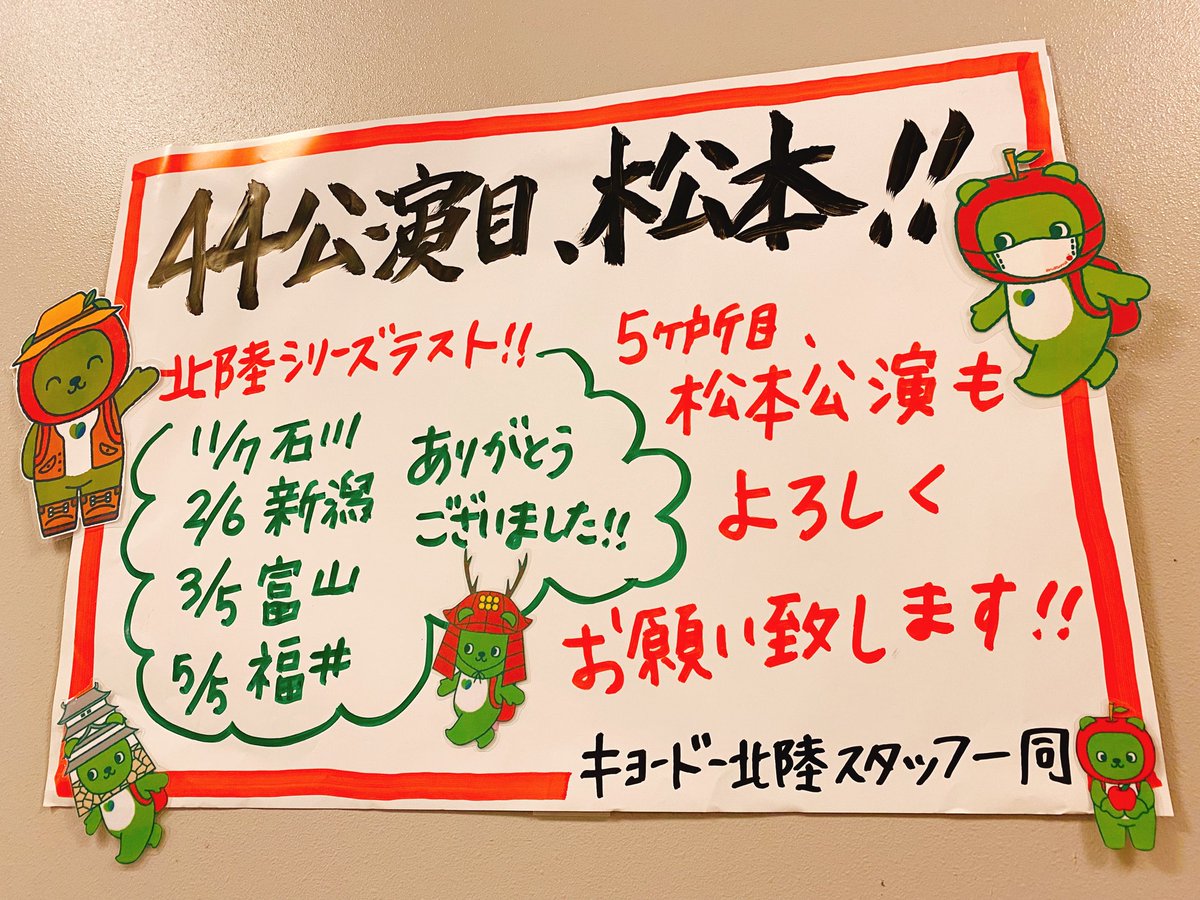 44公演目、松本!!
北陸シリーズラスト!!
11/7 石川
2/6 新潟
3/5 富山
5/5 福井
ありがとう
ございました!!
5ヶ所目、
松本公演も
よろしく
お願い致します!!
キョードー北陸スタッフ一同